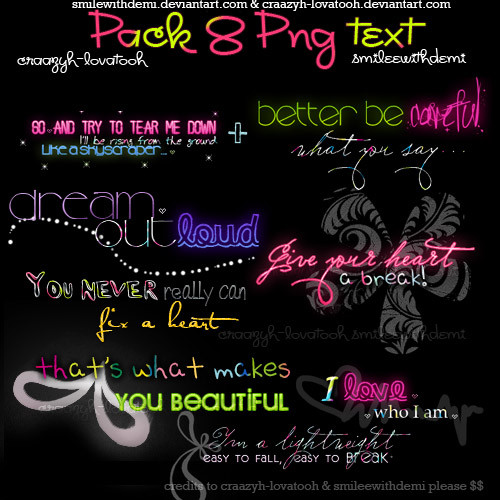 smilewithdemi.deviantart.com & craazyh-lovatooh.deviantart.com
Pack 8 Png text
craazyh-lovatooh smileewithdemi
GO AND TRY TO TEAR ME DOWN
I'll be rising from the ground
Like a skyscraper...
+
better be careful
what you say...
dream
out loud
Give your heart
a break!
YOU NEVER really can
fix a heart
craazyh-lovatooh smileewithdemi
that's what makes
YOU BEAUTIFUL
I love
who I am
I'm a lightweight
EASY TO FALL, EASY TO BREAK
credits to craazyh-lovatooh & smileewithdemi please $$